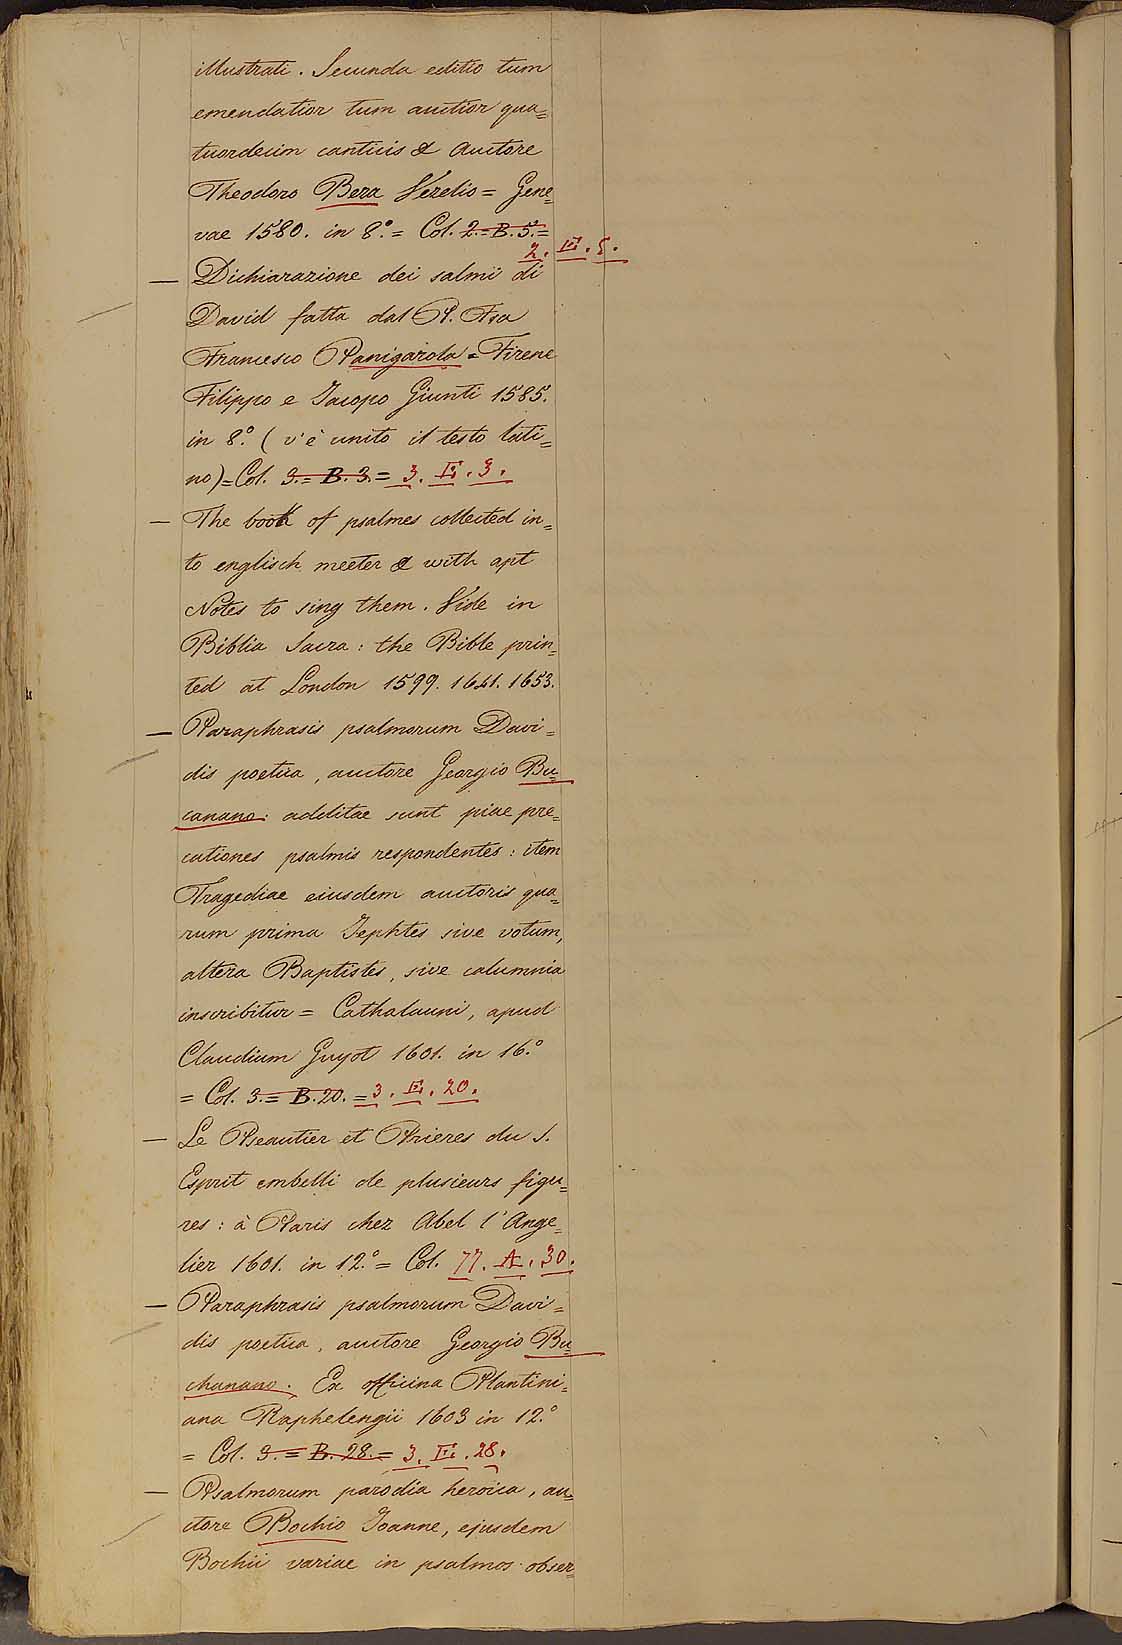 illustrati. Secunda editio tum
emendatior tum auctior qua=
tuordecim canticis & Auctore
Theodoro Beza Vezelio = Gene=
vae 1580. in 8.° = Col. 2. = B. 5. =
2. E. 5.
— Dichiarazione dei salmi di
David fatta dal P. Fra
Francesco Panigarola = Firene
Filippo e Jacopo Giunti 1585.
in 8.° ( v'è unito il testo lati=
no) = Col. 3. = B. 3. = 3. E. 3.
— The book of psalmes collected in=
to englisch meeter & with apt
Notes to sing them. Vide in
Biblia Sacra : the Bible prin=
ted at London 1599. 1641. 1653.
— Paraphrasis psalmorum Davi=
dis poetica, auctore Georgio Bu=
canano : additae sunt piae pre=
cationes psalmis respondentes : item
Tragediae eiusdem auctoris qua=
rum prima Jephtes sive votum,
altera Baptistes, sive calumnia
inscribitur = Cathalauni, apud
Claudium Guyot 1601. in 16.°
= Col. 3. = B. 20. = 3. E. 20.
— Le Pseautier et Prieres du S.
Esprit embelli de plusieurs figu=
res : à Paris chez Abel l'Ange=
lier 1601. in 12.° = Col. 77. A. 30.
— Paraphrasis psalmorum Davi=
dis poetica, auctore Georgio Bu=
chanano. Ex officina Plantini=
ana Raphelengii 1603 in 12.°
= Col. 3. = B. 28. = 3. E. 28.
— Psalmorum parodia heroica, au=
ctore Bochio Joanne, ejusdem
Bochii variae in psalmos obser=